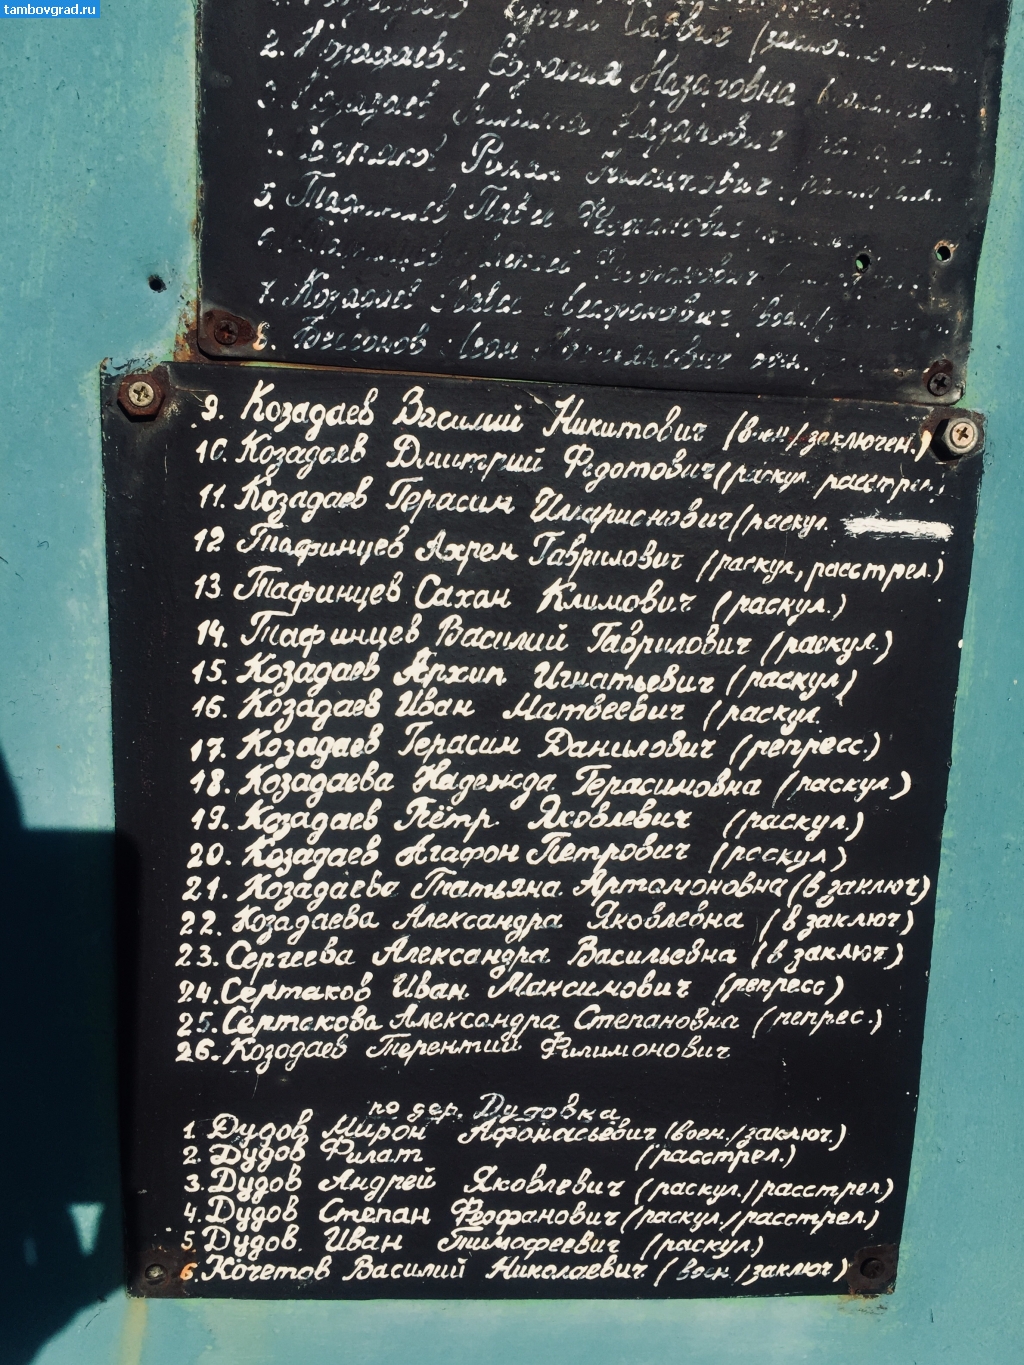 tambovgrad.ru
2. Козадаева Евдокия Назаровна
3. Козадаев Назарович
4. Сертаков Роман Никитович
5. Павел
6.
7. Козадаев Павел Мифонович (воен./
8. Леон воен.
9. Козадаев Василий Никитович (воен/заключен.)
10. Козадаев Дмитрий Федотович (раскул. расстрел.)
11. Козадаев Герасим Иларионович (раскул.
12 Тафинцев Ахрем Гаврилович (раскул, расстрел.)
13. Тафинцев Сахан Климович (раскул.)
14. Тафинцев Василий Гаврилович (раскул.)
15. Козадаев Архип Игнатьевич (раскул)
16. Козадаев Иван Матвеевич (раскул.
17. Козадаев Герасим Данилович (репресс.)
18. Козадаева Надежда Герасимовна (раскул.)
19. Козадаев Пётр Яковлевич (раскул.)
20. Козадаев Агафон Петрович (раскул)
21. Козадаева Татьяна Артамоновна (в заключ)
22. Козадаева Александра Яковлевна (в заключ)
23. Сергеева Александра Васильевна (в заключ)
24. Сертаков Иван Максимович (репресс)
25. Сертакова Александра Степановна (репрес.)
26. Козодаев Терентий Филимонович
по дер. Дудовка
1. Дудов Мирон Афонасьевич (воен./заключ.)
2. Дудов Филат (расстрел.)
3. Дудов Андрей Яковлевич (раскул./расстрел)
4. Дудов Степан Феофанович (раскул./расстрел.)
5. Дудов Иван Тимофеевич (раскул.)
6. Кочетов Василий Николаевич (воен./заключ)